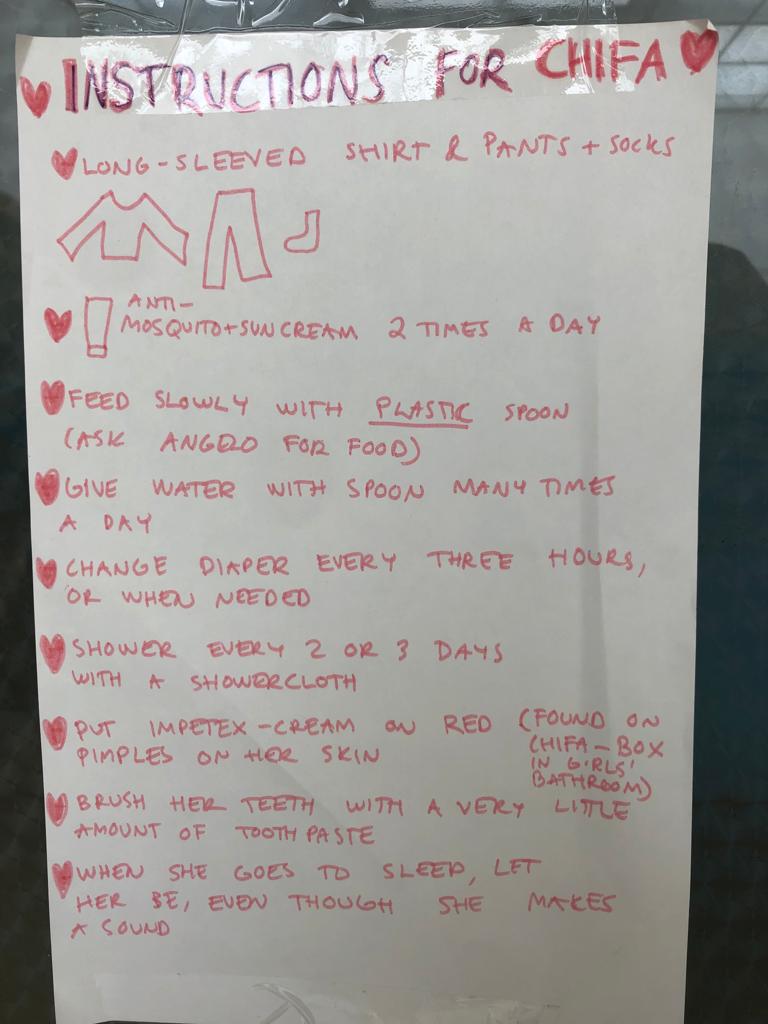 INSTRUCTIONS FOR CHIFA
LONG-SLEEVED SHIRT & PANTS + SOCKS
ANTI-
MOSQUITO+SUNCREAM 2 TIMES A DAY
FEED SLOWLY WITH PLASTIC SPOON
(ASK ANGELO FOR FOOD)
GIVE WATER WITH SPOON MANY TIMES
A DAY
CHANGE DIAPER EVERY THREE HOURS,
OR WHEN NEEDED
SHOWER EVERY 2 OR 3 DAYS
WITH A SHOWERCLOTH
PUT IMPETEX-CREAM ON RED
PIMPLES ON HER SKIN
(FOUND ON
CHIFA-BOX
IN GIRLS'
BATHROOM)
BRUSH HER TEETH WITH A VERY LITTLE
AMOUNT OF TOOTHPASTE
WHEN SHE GOES TO SLEEP, LET
HER BE, EVEN THOUGH SHE MAKES
A SOUND